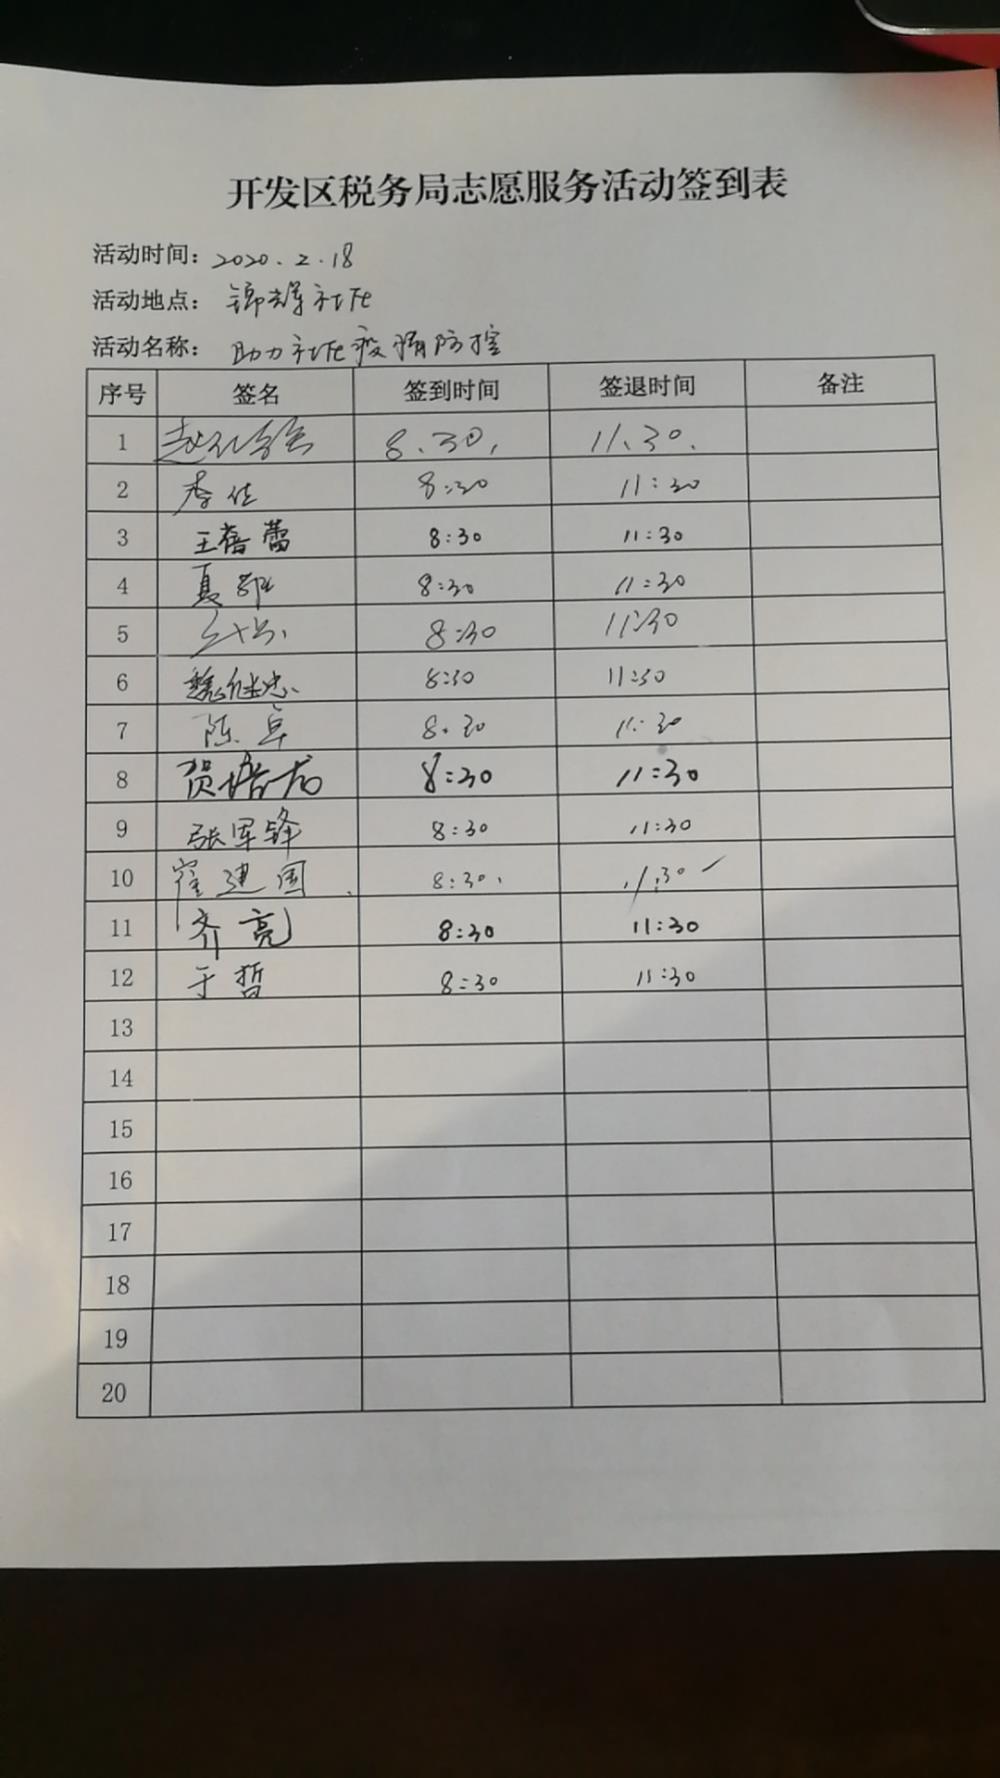 开发区税务局志愿服务活动签到表
活动时间：2020.2.18
活动地点：锦绣社区
活动名称：助力社区疫情防控
序号 签名 签到时间 签退时间 备注
1 8.30, 11.30.
2 李佳 8:30 11:30
3 王蓓蕾 8:30 11:30
4 夏 8:30 11:30
5 8:30 11:30
6 魏继忠 8:30 11:30
7 陈军 8.30 11:30
8 贺培龙 8:30 11:30
9 张军锋 8:30 11:30
10 崔建国 8:30. 11:30
11 齐亮 8:30 11:30
12 于哲 8:30 11:30
13
14
15
16
17
18
19
20